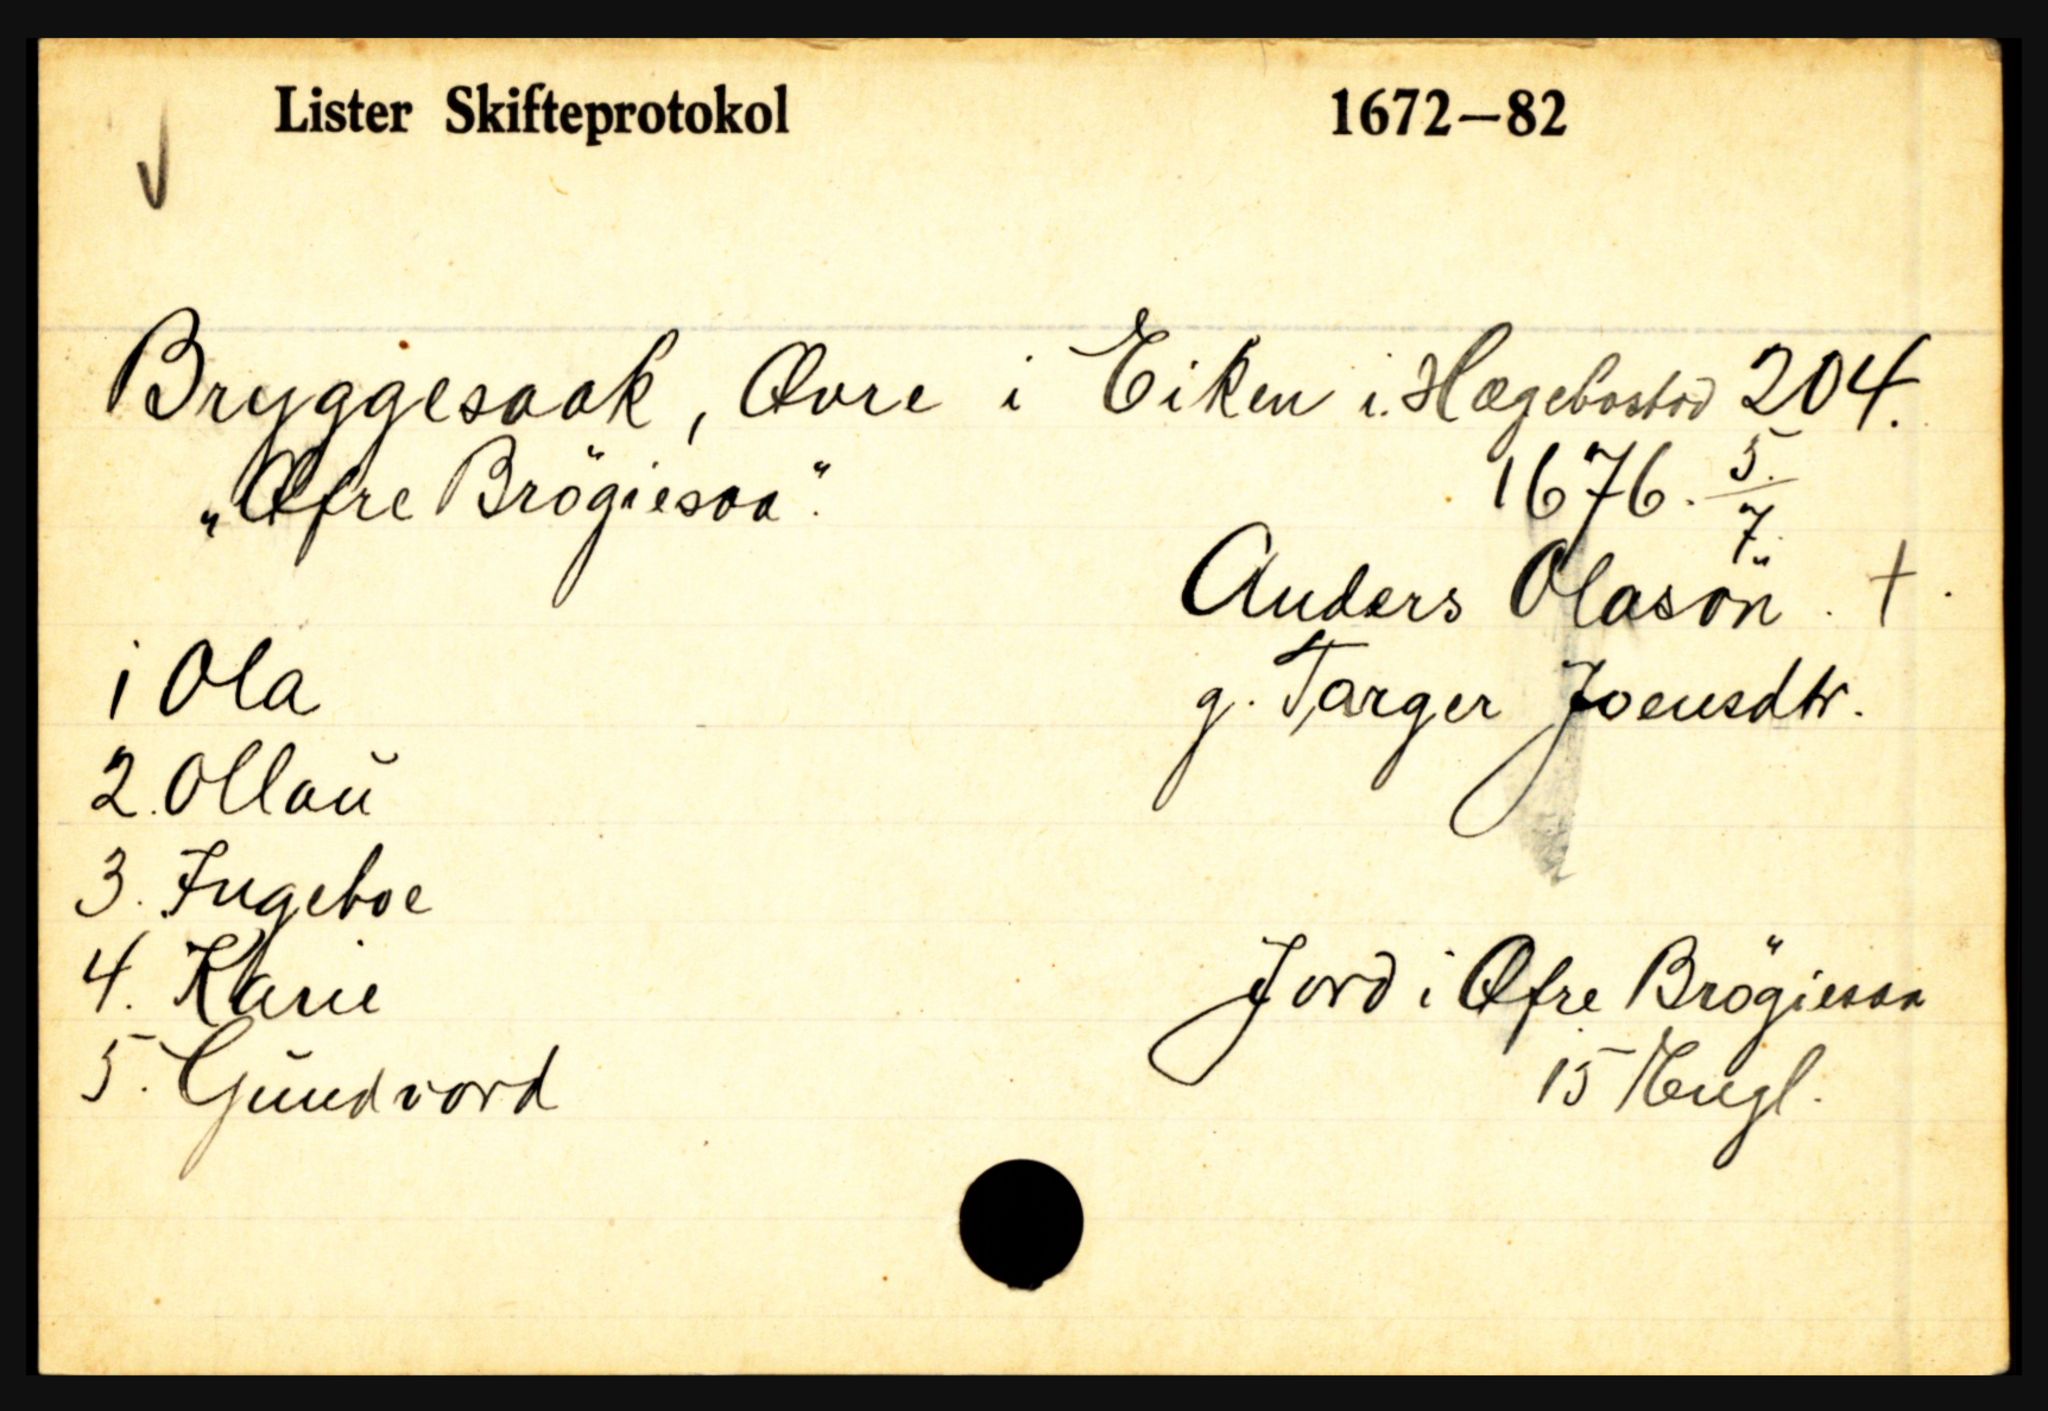 Lister Skifteprotokol 1672—82
Bryggesaak, Øvre i Eiken i. Hægebostad 204.
„Øfre Brögiesaa". 1676. 5./7.
Anders Olasön. †.
1 Ola g. Targer Joensdtr.
2. Ollaŭ
3. Ingeboe
4. Karie Jord i Øfre Brögiesaa
5. Gŭndvord 15 Engl.